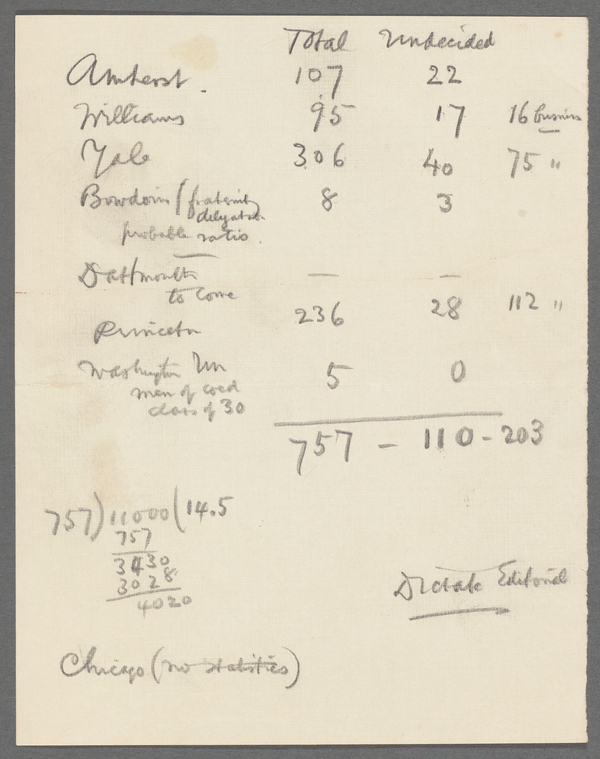 Total Undecided
Amherst. 107 22
Williams 95 17 16 business
Yale 306 40 75 "
Bowdoin (fraternity 8 3
delegation
probable ratio.
Dartmouth — —
to come
Princeton 236 28 112 "
Washington Un 5 0
men of coed
class of 30
757 - 110 - 203
757)11000(14.5
757
3430
3028
4020
Dictate Editorial
Chicago (no statistics)